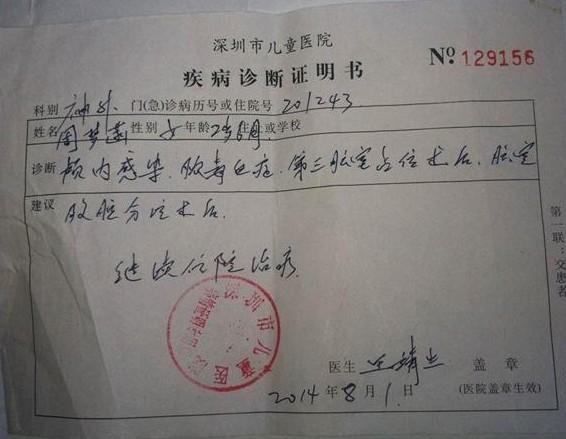 深圳市儿童医院
疾病诊断证明书
№ 129156
科别 神外 门(急)诊病历号或住院号 201243
姓名 周梦菡 性别 女 年龄 2岁 月 住址或学校
诊断 颅内感染、脓毒血症、第三脑室占位术后、脑室
建议 腹腔分流术后.
继续住院治疗
深圳市儿童医院
医生 盖章
2014年8月1日 (医院盖章生效)
第一联:交患者